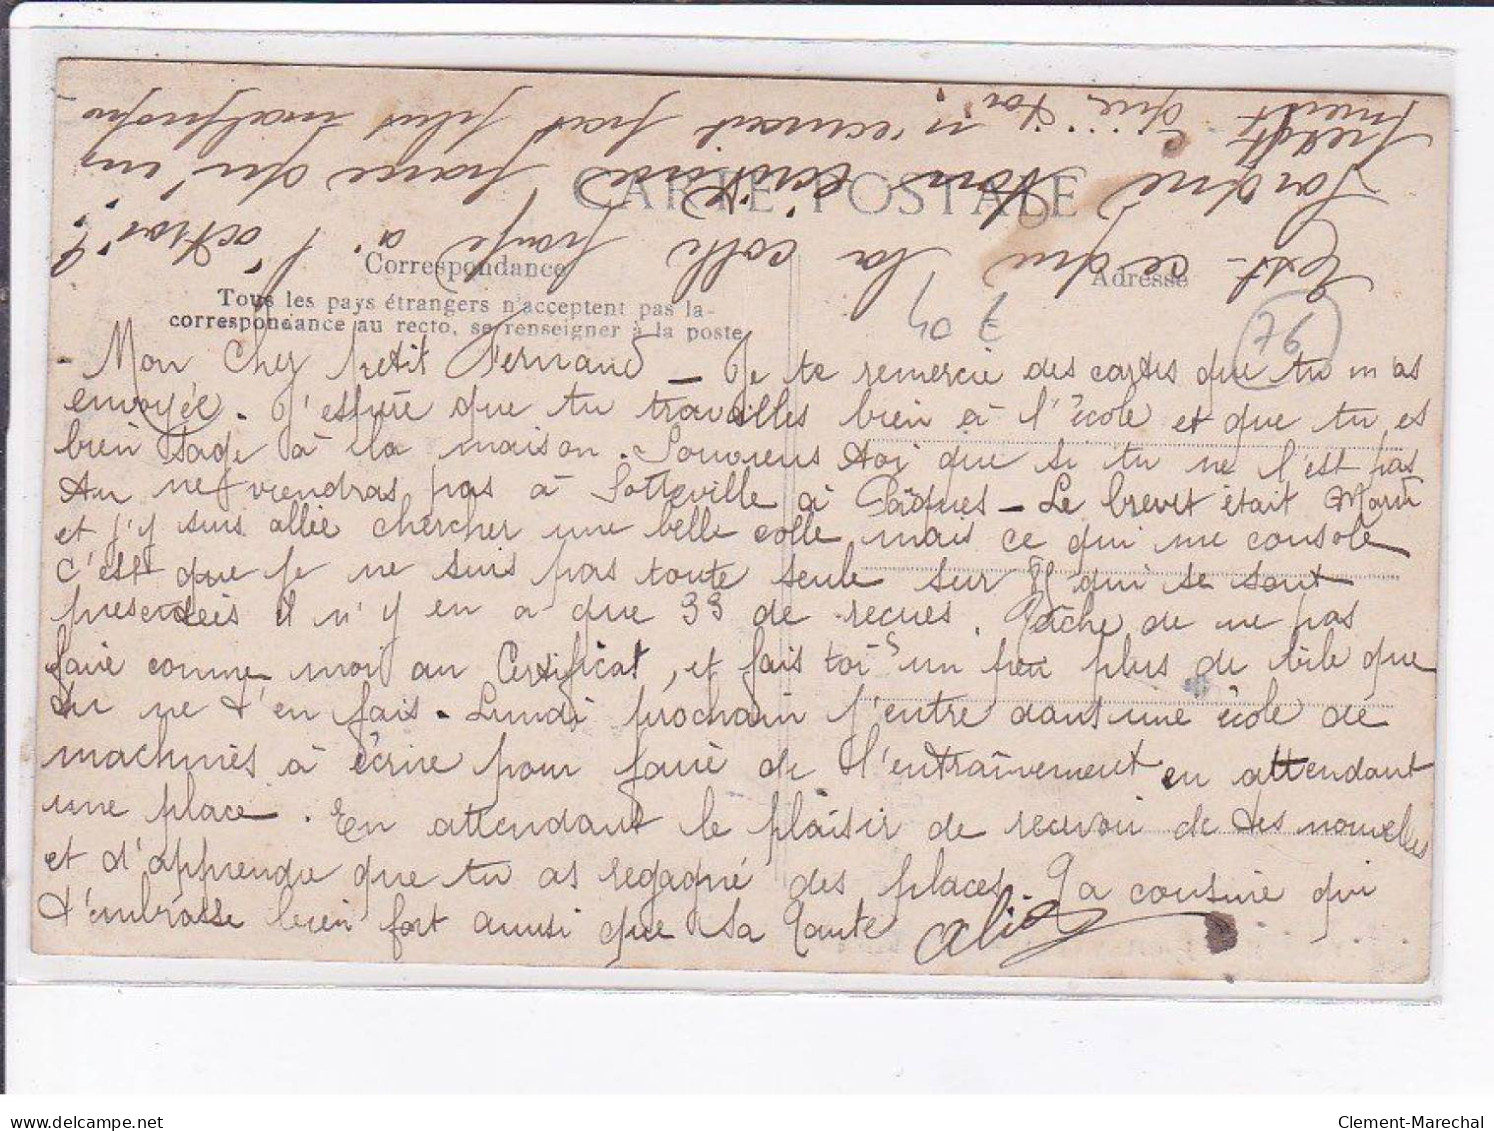 Est-ce qui la colle paye à l'octroi?
Sardine ton écritoire parce qu'un
n'écrirait pas plus malpropre
que toi?
CARTE POSTALE
Correspondance
Adresse
Tous les pays étrangers n'acceptent pas la
correspondance au recto, se renseigner à la poste
76
- Mon Cher petit Fernand - Je te remercie des cartes que tu m'as
envoyée. J'espère que tu travailles bien à l'école et que tu es
bien sage à la maison. Souviens toi que si tu ne l'est pas
tu ne viendras pas à Sotteville à Pâques - Le brevet était Mardi
et j'y suis allée chercher une belle colle mais ce qui me console
c'est que je ne suis pas toute seule sur 85 qui se sont
présentées il n'y en a que 33 de reçues. Tâche de ne pas
faire comme moi au Certificat, et fais toi un peu plus de bile que
tu ne t'en fais - Lundi prochain j'entre dans une école de
machines à écrire pour faire de l'entraînement en attendant
une place. En attendant le plaisir de recevoir de tes nouvelles
et d'apprendre que tu as regagné des places. Ta cousine qui
t'embrasse bien fort aussi que ta Tante Alice
Clement-Marechal
www.delcampe.net